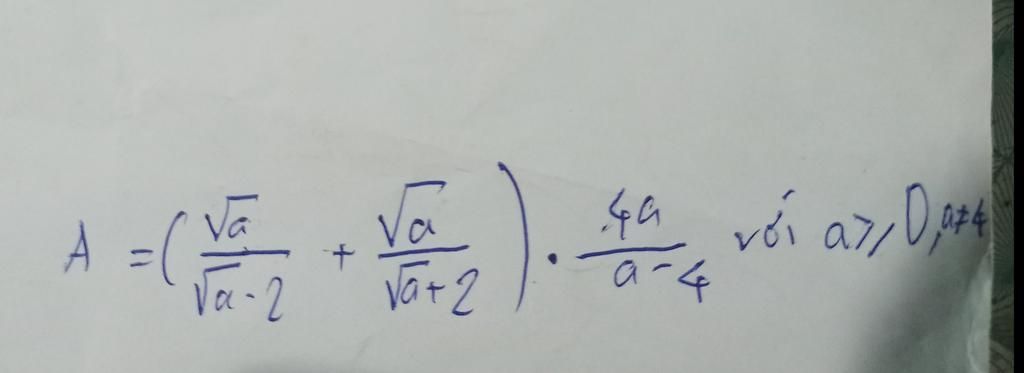 A = ( √a / (√a - 2) + √a / (√a + 2) ) . 4a / (a - 4) với a ≥ 0, a ≠ 4